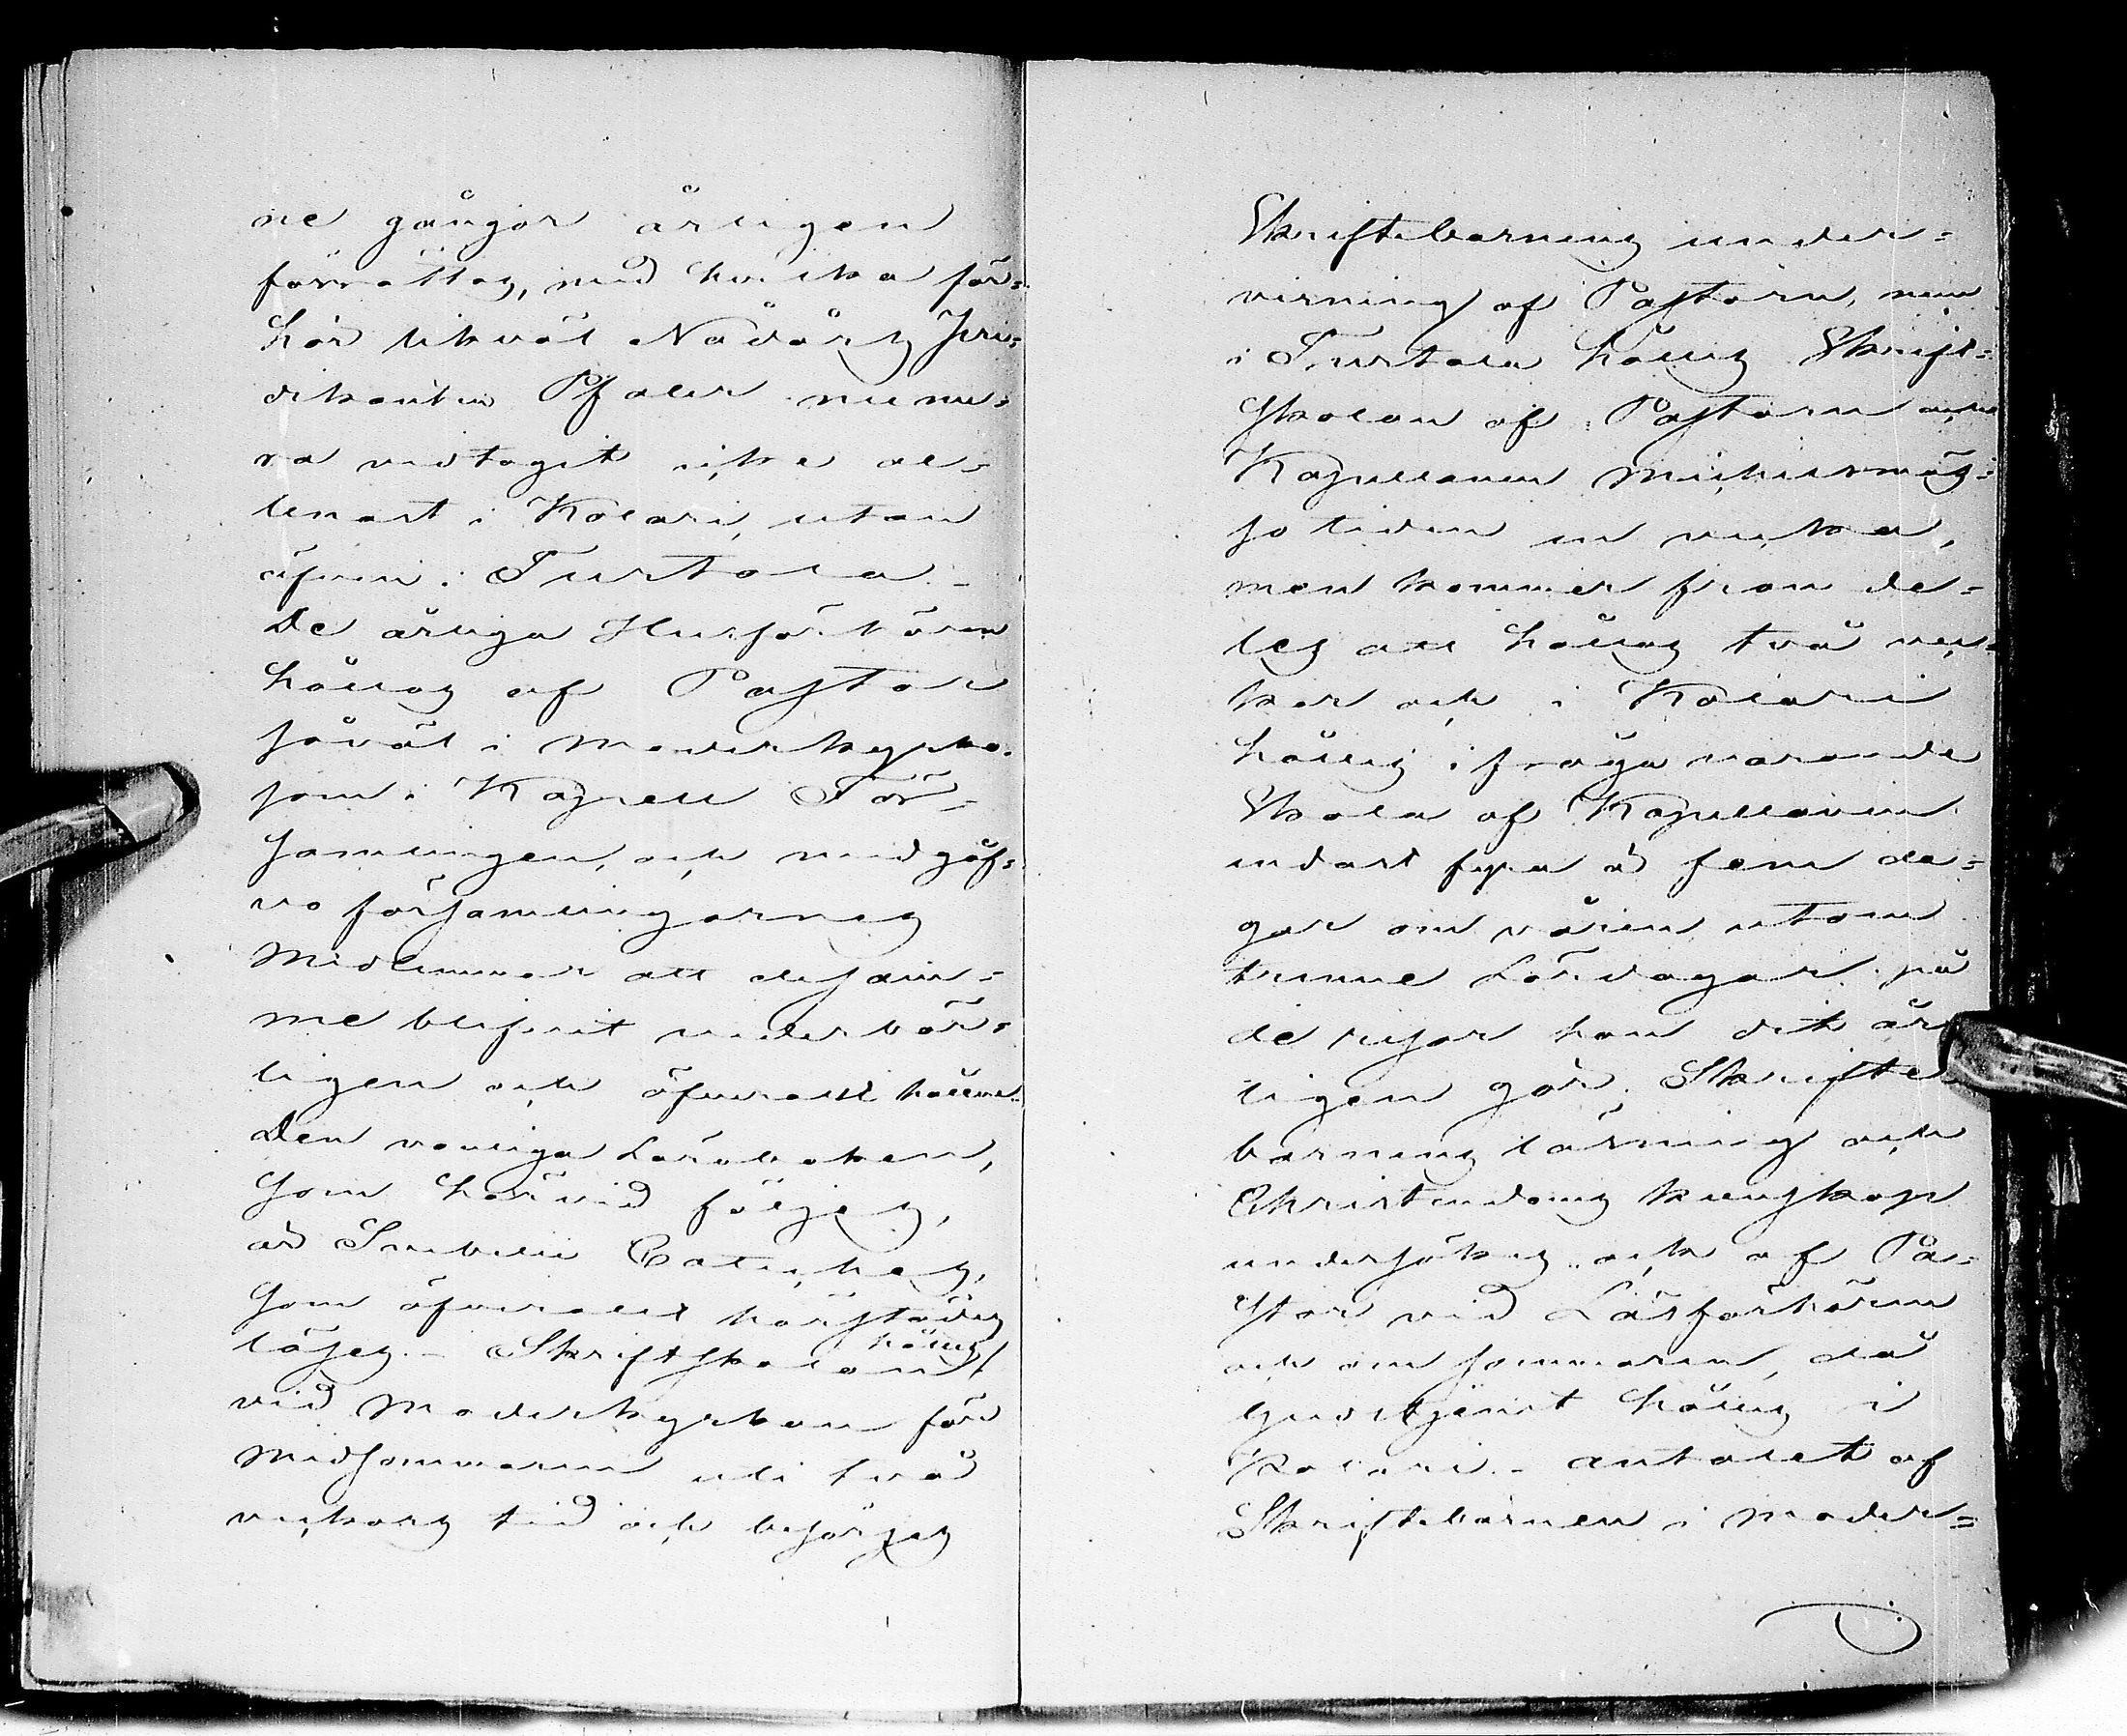 ne gångor årligen
förrättas, med hvilka för=
hör likväl Nådårs Pre=
dikanten Pfaler nume=
ra vidtagit icke al=
lenast i Kolari, utan
äfven i Turtola. –
De årliga Husförhören
hållas af Pastor
såväl i Moderkyrko=
som i Kapell För=
samlingen, och medgåf=
vo församlingarnes
Medlemmar att desam=
me blifvit vederbör=
ligen och öfverallt hållne.
Den vanliga Läroboken,
som härvid följes,
är Svebelii Cateches,
som öfverallt härstädes
läses. – Skriftskolan hålles
vid Moderkyrkan för
Midsommaren uti två
veckors tid och besörjes
Skriftebarnens under=
visning af Pastorn, men
i Turtola hålles Skrift=
skolan af Pastorn och
Kapellanen Michelsmäs=
so tiden en vecka,
men kommer fram de=
les att hållas två vec=
kor och i Kolari
hålles ifrågavarande
Skola af Kapellanen
endast fyra à fem da=
gar om våren utom
trenne Lördagar på
de resor han dit år
ligen gör. Skrifte
barnens läsning och
Christendoms kunskap
undersökes och af Pa=
stor vid Läsförhören
och om sommaren, då
Gudstjenst hålles i
Kolari. – Antalet af
Skriftebarnen i Moder=